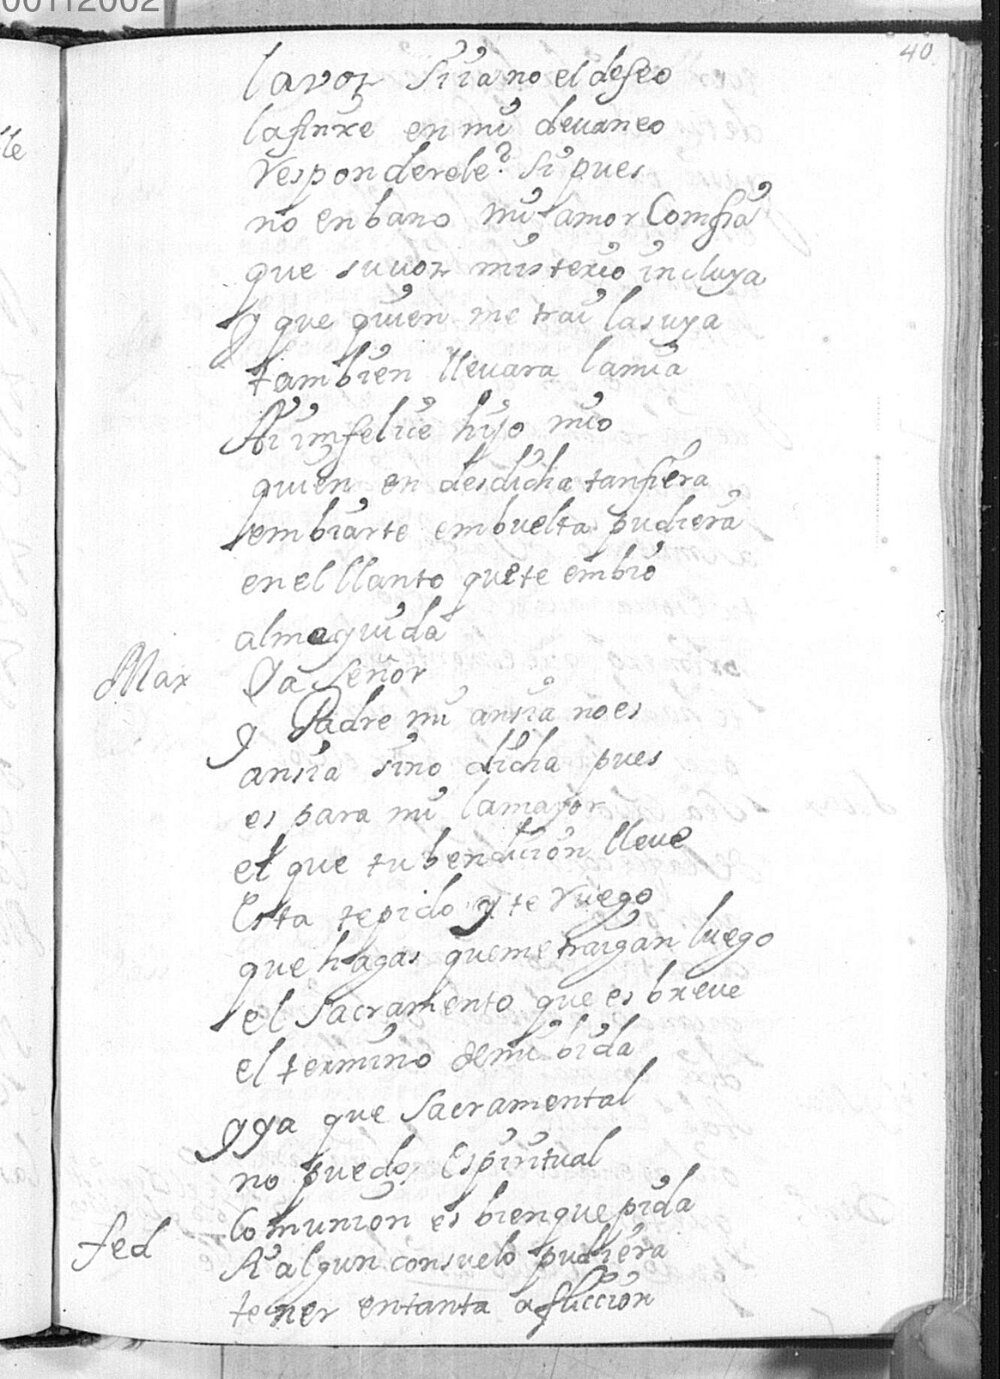 00112002
40
la voz si ia no el deseo
la finxe en mi devaneo
Responderele? Si pues
no en bano mi amor Comfia
que su voz misterio incluya
y que quien me trai la suya
tambien llevara la mia
Ai imfelice hijo mio
quien en desdicha tan fiera
embiarte embuelta pudiera
en el llanto que te embio
alma y vida
Max Ya Señor
y Padre mi ansia no es
ansia sino dicha pues
es para mi la mayor
el que tu bendicion lleve
Esta te pido y te Ruego
que hagas que me traigan luego
el Sacramento que es breve
el termino de mi bida
y ya que Sacramental
no puedo, Espiritual
Comunion es bien que pida
fed Si algun consuelo pudiera
tener en tanta afliccion